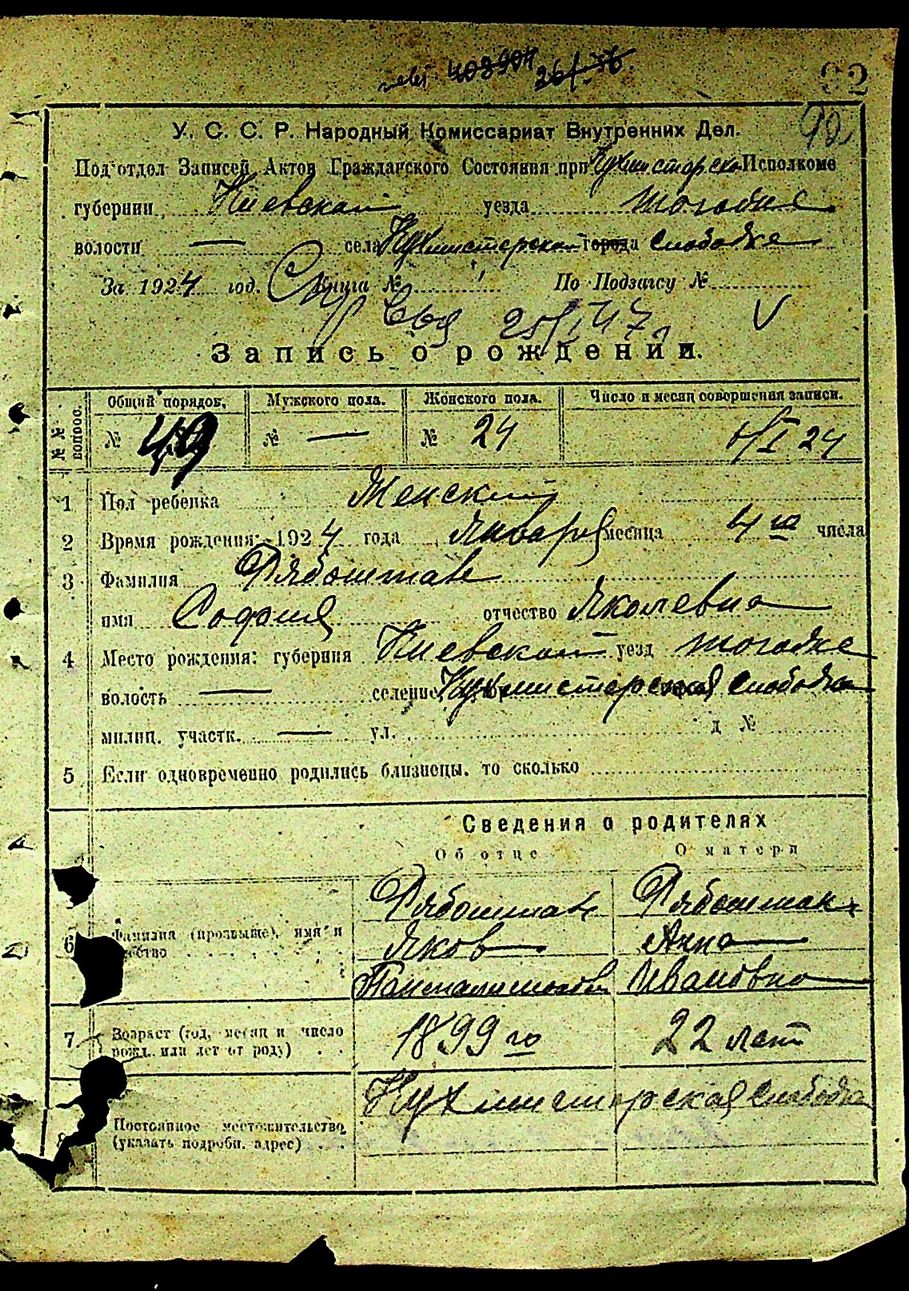 408994 26/I-76.
92
90
У. С. С. Р. Народный Комиссариат Внутренних Дел.
Под'отдел Записей Актов Гражданского Состояния при Кухмистерско Исполкоме
губернии Киевской уезда тогоже
волости — села Кухмистерской города Слободке
За 1924 год. Книга № По Подзагсу №
25/I 47 V
Запись о рождении.
№№ вопрос. Общий порядок. Мужского пола. Женского пола. Число и месяц совершения записи.
№ 49 № — № 24 4/I 24
1 Пол ребенка Женский
2 Время рождения: 1924 года Января месяца 4го числа
3 Фамилия Рябоштан
имя София отчество Яковлевна
4 Место рождения: губерния Киевской уезд тогоже
волость — селение Кухмистерская Слободка
милиц. участк. — ул. д №
5 Если одновременно родились близнецы, то сколько
Сведения о родителях
Об отце О матери
Рябоштан Рябоштан
6 Фамилия (прозвище), имя и Яков Анна
Ивановна
7 Возраст (год, месяц и число рожд. или лет от роду) 1899 го 22 лет
Кухмистерская Слободка
8 Постоянное местожительство
(указать подробн. адрес)